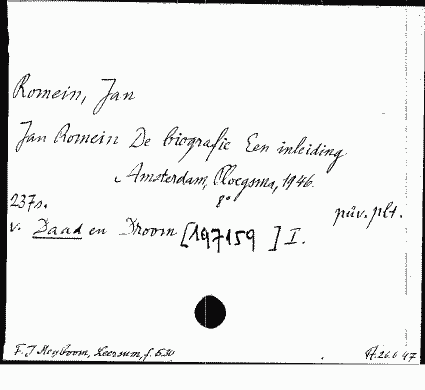 Romein, Jan
Jan Romein De biografie Een inleiding
Amsterdam, Ploegsma, 1946.
8°
237s. püv. plt.
v. Daad en Droom [197159] I.
F. J. Meyboom, Leersum, f. 6.30 A. 26.6 47